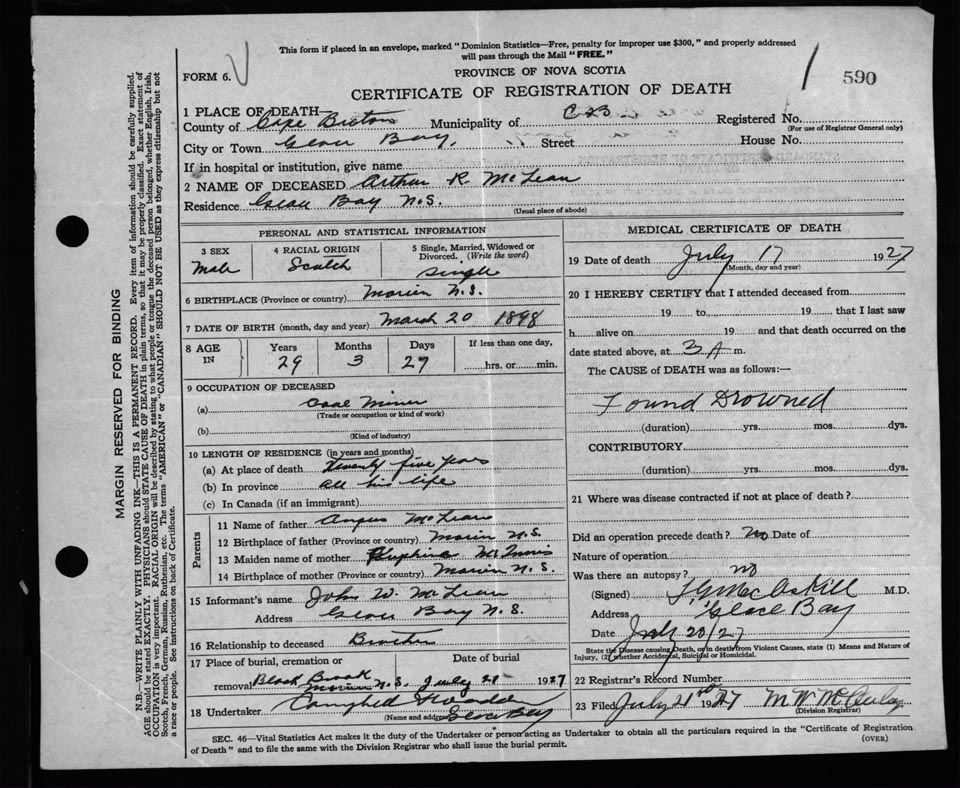 This form if placed in an envelope, marked "Dominion Statistics—Free, penalty for improper use $300," and properly addressed
will pass through the Mail "FREE."
FORM 6.
PROVINCE OF NOVA SCOTIA
1 590
CERTIFICATE OF REGISTRATION OF DEATH
1 PLACE OF DEATH—
County of Cape Breton Municipality of C B Registered No.
(For use of Registrar General only)
City or Town Glace Bay, Street House No.
If in hospital or institution, give name
2 NAME OF DECEASED Arthur R McLean
Residence Glace Bay N.S.
(Usual place of abode)
PERSONAL AND STATISTICAL INFORMATION
3 SEX 4 RACIAL ORIGIN 5 Single, Married, Widowed or Divorced. (Write the word)
Male Scotch Single
6 BIRTHPLACE (Province or country) Marion N.S.
7 DATE OF BIRTH (month, day and year) March 20 1898
8 AGE IN Years Months Days If less than one day,
29 3 27 hrs. or min.
9 OCCUPATION OF DECEASED
(a) Coal Miner
(Trade or occupation or kind of work)
(b)
(Kind of industry)
10 LENGTH OF RESIDENCE (in years and months)
(a) At place of death Twenty five years
(b) In province all his life
(c) In Canada (if an immigrant)
Parents
11 Name of father Angus McLean
12 Birthplace of father (Province or country) Marion N.S.
13 Maiden name of mother McInnis
14 Birthplace of mother (Province or country) Marion N.S.
15 Informant's name John W. McLean
Address Glace Bay N.S.
16 Relationship to deceased Brother
17 Place of burial, cremation or removal Date of burial
Black Brook
Marion N.S. July 21 1927
18 Undertaker Campbell
(Name and address) Glace Bay
MEDICAL CERTIFICATE OF DEATH
19 Date of death July 17 1927
(Month, day and year)
20 I HEREBY CERTIFY that I attended deceased from
19 to 19 that I last saw
h alive on 19 and that death occurred on the
date stated above, at 3 A m.
The CAUSE of DEATH was as follows:—
Found Drowned
(duration) yrs. mos. dys.
CONTRIBUTORY
(duration) yrs. mos. dys.
21 Where was disease contracted if not at place of death?
Did an operation precede death? No Date of
Nature of operation
Was there an autopsy? no
(Signed) McAskill M.D.
Address Glace Bay
Date July 20/27
State the Disease causing Death, or in death from Violent Causes, state (1) Means and Nature of
Injury, (2) whether Accidental, Suicidal or Homicidal.
22 Registrar's Record Number
23 Filed July 21 1927
(Division Registrar)
SEC. 46—Vital Statistics Act makes it the duty of the Undertaker or person acting as Undertaker to obtain all the particulars required in the "Certificate of Registration
of Death" and to file the same with the Division Registrar who shall issue the burial permit.
(OVER)
MARGIN RESERVED FOR BINDING
N.B.—WRITE PLAINLY WITH UNFADING INK—THIS IS A PERMANENT RECORD. Every item of information should be carefully supplied.
AGE should be stated EXACTLY. PHYSICIANS should STATE CAUSE OF DEATH in plain terms, so that it may be properly classified. Exact statement of
OCCUPATION is very important. RACIAL ORIGIN will be described by stating to what people or tongue the deceased person belonged, whether English, Irish,
Scotch, French, German, Russian, Ruthenian, etc. The terms "AMERICAN" or "CANADIAN" SHOULD NOT BE USED as they express citizenship but not
a race or people. See instructions on back of Certificate.